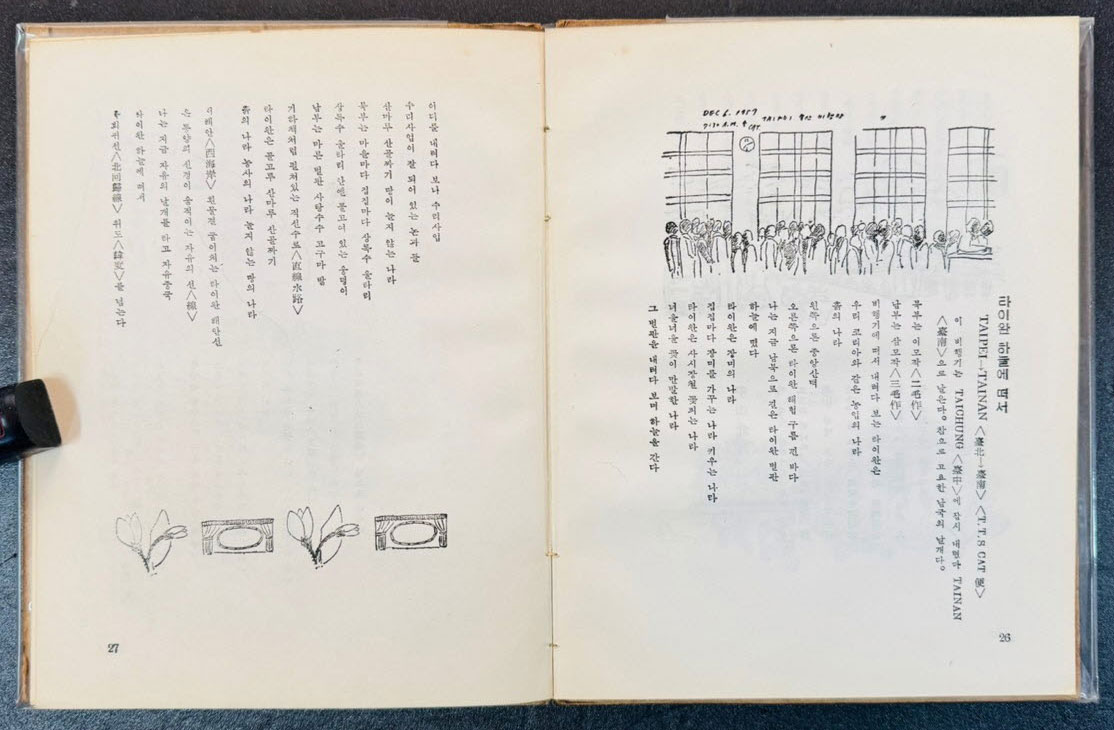 타이완 하늘에 떠서
TAIPEI→TAINAN〈臺北→臺南〉〈T.T.S CAT 便〉
이 비행기는 TAICHUNG〈臺中〉에 잠시 내렸다 TAINAN
〈臺南〉으로 날은다。참으로 고요한 남국의 날개다。
북부는 이모작〈二毛作〉
남부는 삼모작〈三毛作〉
비행기에 떠서 내려다 보는 타이완은
우리 코리아와 같은 농업의 나라
흙의 나라
왼쪽으론 중앙산맥
오른쪽으론 타이완 해협 구름 낀 바다
나는 지금 남북으로 길은 타이완 벌판
하늘에 떴다
타이완은 장미의 나라
집집마다 장미를 가꾸는 나라 키우는 나라
타이완은 사시장철 꽃피는 나라
너울너울 꽃이 만발한 나라
그 벌판을 내려다 보며 하늘을 간다
DEC 6. 1959
7:30 A.M. CAT TAIPEI
26
어디를 내려다 보나 수리사업
수리사업이 잘 되어 있는 논과 들
산마루 산골짜기 땅이 놀지 않는 나라
북부는 마을마다 집집마다 상록수 울타리
상록수 울타리 안엔 졸고 있는 숭덩이
남부는 마른 벌판 사탕수수 고구마 밭
기하체처럼 펼쳐있는 직선수로〈直線水路〉
타이완은 골고루 산마루 산골짜기
흙의 나라 농사의 나라 놀지 않는 땅의 나라
서해안〈西海岸〉 흰물결 굽이치는 타이완 해안선
은 동양의 신경이 움직이는 자유의 선〈線〉
나는 지금 자유의 날개를 타고 자유중국
타이완 하늘에 떠서
북회귀선〈北回歸線〉 위도〈緯度〉를 넘는다
27